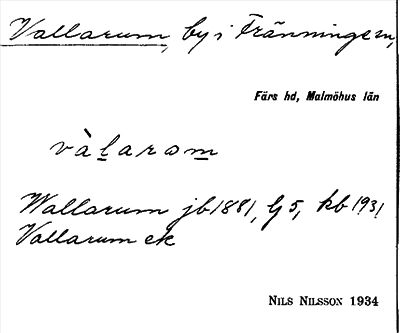 Vallarum, by i Tränninge sn,
Färs hd, Malmöhus län
vàlarom
Wallarum jb 1881, Lj 5, kb 1931
Vallarum ek
NILS NILSSON 1934